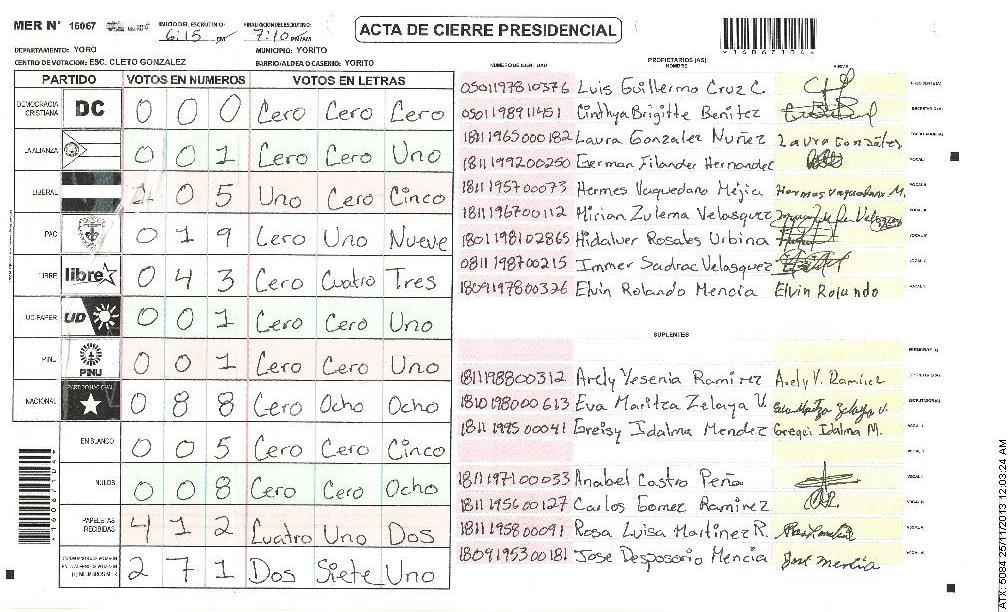 MER N° 16067 INICIO DEL ESCRUTINIO: 6:15 PM FINALIZACION DEL ESCRUTINIO: 7:10 PM/AM
ACTA DE CIERRE PRESIDENCIAL
DEPARTAMENTO: YORO MUNICIPIO: YORITO
CENTRO DE VOTACION: ESC. CLETO GONZALEZ BARRIO/ALDEA O CASERIO: YORITO
PARTIDO VOTOS EN NUMEROS VOTOS EN LETRAS
DEMOCRACIA CRISTIANA DC 0 0 0 Cero Cero Cero
LA ALIANZA 0 0 1 Cero Cero Uno
LIBERAL 1 0 5 Uno Cero Cinco
PAC 0 1 9 Cero Uno Nueve
LIBRE libre 0 4 3 Cero Cuatro Tres
UD-FAPER UD 0 0 1 Cero Cero Uno
PINU PINU 0 0 1 Cero Cero Uno
NACIONAL PARTIDO NACIONAL 0 8 8 Cero Ocho Ocho
EN BLANCO 0 0 5 Cero Cero Cinco
NULOS 0 0 8 Cero Cero Ocho
PAPELETAS RECIBIDAS 4 1 2 Cuatro Uno Dos
2 7 1 Dos Siete Uno
PROPIETARIOS (AS)
NUMERO DE IDENTIDAD NOMBRE FIRMA
0501197810376 Luis Guillermo Cruz C.
0501198911451 Cinthya Brigitte Benitez
1811196500182 Laura Gonzalez Nuñez Laura Gonzáles
1811199200250 German Filander Hernandez
1811195700073 Hermes Vaquedano Mejia Hermes Vaquedano M.
1811196700112 Mirian Zulema Velasquez
1801198102865 Hidalver Rosales Urbina
0811198700215 Immer Sadrac Velasquez
1809197800326 Elvin Rolando Mencia Elvin Rolando
SUPLENTES
1811198800312 Arely Yesenia Ramirez Arely Y. Ramirez
1810198000613 Eva Maritza Zelaya U. Eva Maritza Zelaya U.
1811199500041 Greisy Idalma Mendez Idalma M.
1811197100033 Anabel Castro Peña
1811195600127 Carlos Gomez Ramirez
1811195800091 Rosa Luisa Martinez R.
1809195300181 Jose Desposorio Mencia José Mencia
ATX: 5084 25/11/2013 12:03:24 AM